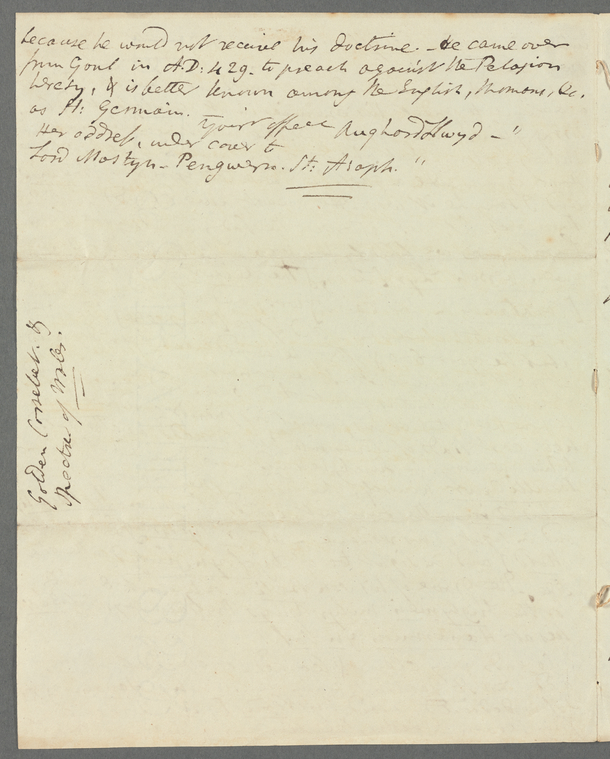 because he would not receive his doctrine. - He came over
from Gaul in A.D: 429 - to preach against the Pelagian
heresy, & is better known among the English, Romans, &c.
as St: Germain.
Your's affec Angharad Llwyd - "
Her address, under cover to
Lord Mostyn - Pengwern. St: Asaph. "
Golden Corselet. &
Spectre of Wales.